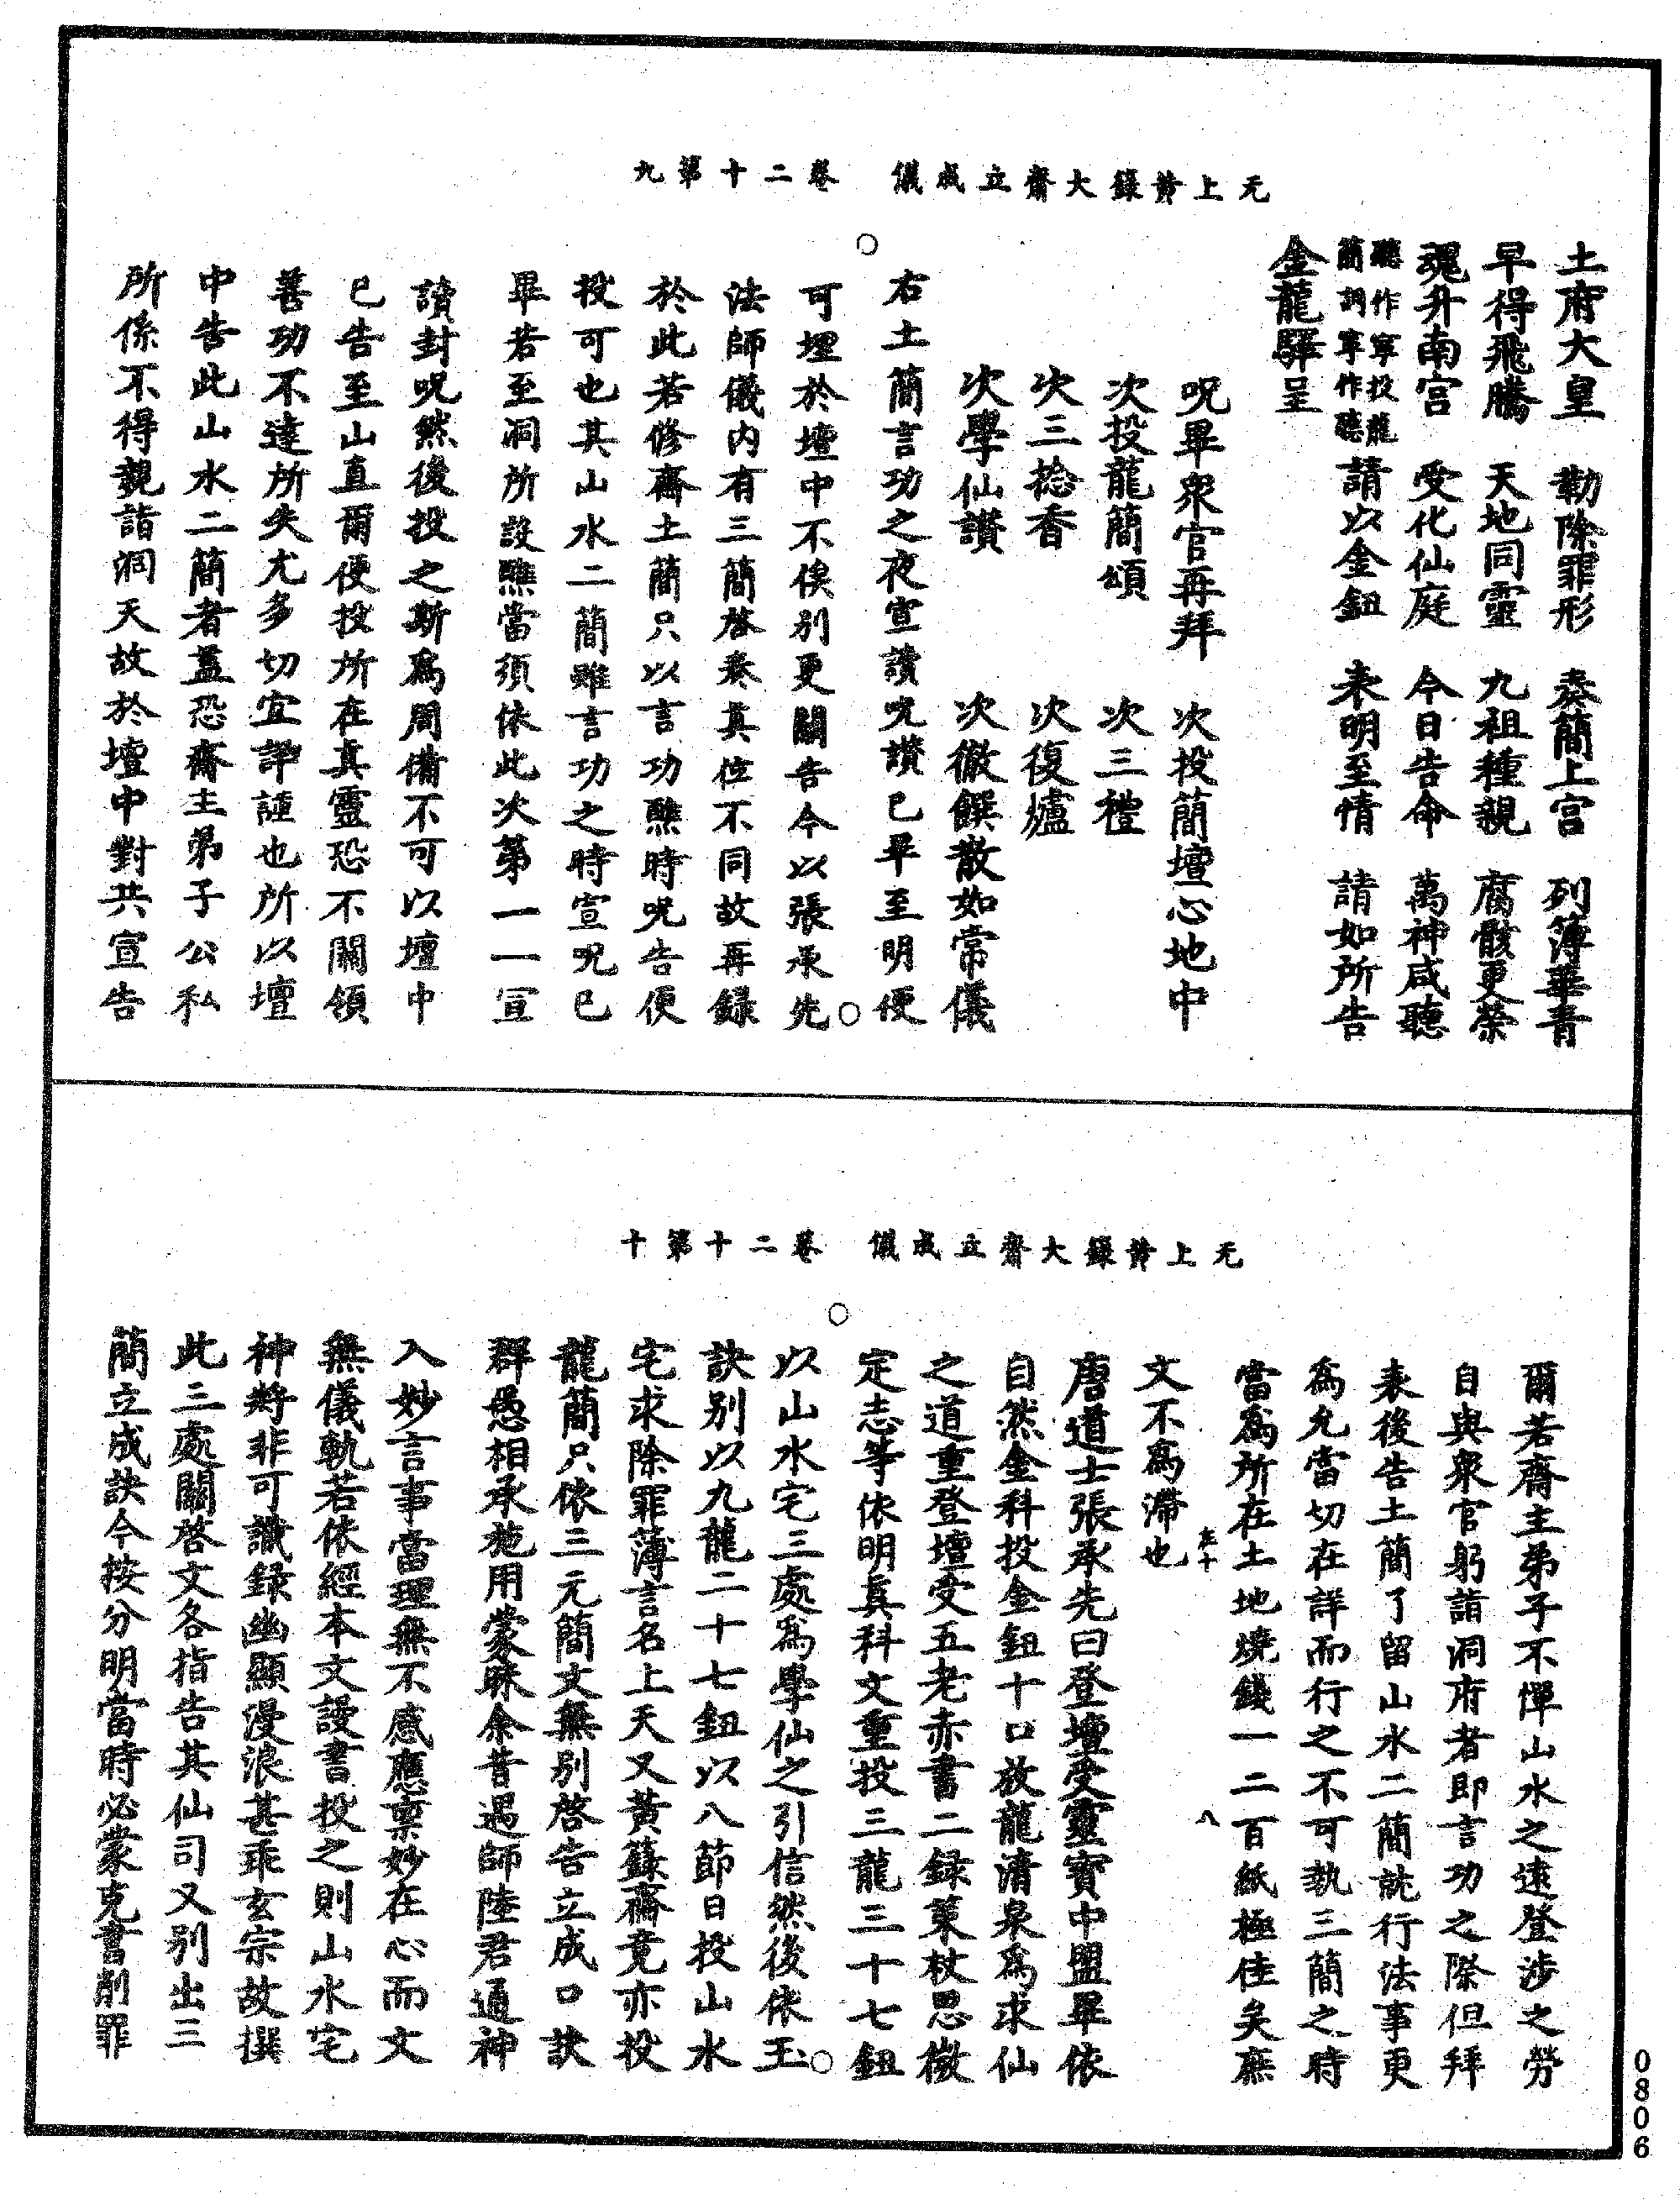 无上黃籙大齋立成儀　卷二十第九
土府大皇　勒除罪形　奏簡上宮　列簿華青
早得飛騰　天地同靈　九祖種親　腐骸更榮
魂升南宮　受化仙庭　今日告命　萬神咸聽
聽作寧投龍簡詞寧作聽請以金鈕　表明至情　請如所告
金龍驛呈
呪畢眾官再拜　次投簡壇心地中
次投龍簡頌　次三禮
次三捻香　次復爐
次學仙讚　次徹饌散如常儀
右土簡言功之夜宣讀呪讚已畢至明便
可埋於壇中不俟別更關告今以張承先
法師儀內有三簡啓奏真位不同故再録
於此若修齋土簡只以言功醮時呪告便
投可也其山水二簡雖言功之時宣呪已
畢若至洞所設醮當須依此次第一一宣
讀封呪然後投之斯爲周備不可以壇中
已告至山直爾便投所在真靈恐不關領
善功不達所失尤多切宜評謹也所以壇
中告此山水二簡者蓋恐齋主弟子公私
所係不得親詣洞天故於壇中對共宣告
无上黃籙大齋立成儀　卷二十第十
爾若齋主弟子不憚山水之遠登涉之勞
自與眾官躬詣洞府者即言功之際但拜
表後告土簡了留山水二簡就行法事更
爲允當切在詳而行之不可執三簡之時
當爲所在土地燒錢一二百紙極佳矣庶
文不爲滯也
唐道士張承先曰登壇受靈寶中盟畢依
自然金科投金鈕十口放龍清泉爲求仙
之道重登壇受五老赤書二録策杖思微
定志等依明真科文重投三龍三十七鈕
以山水宅三處爲學仙之引信然後依玉
訣別以九龍二十七鈕以八節日投山水
宅求除罪薄言名上天又黃籙齋竟亦投
龍簡只依三元簡文無別啓告立成口訣
群愚相承施用蒙昧余昔遇師陸君通神
入妙言事當理無不感應稟妙在心而文
無儀軌若依經本文謾書投之則山水宅
神將非可識録幽顯漫浪甚乖玄宗故撰
此三處關啓文各指告其仙司又別出三
簡立成訣今按分明當時必蒙克書削罪
0806